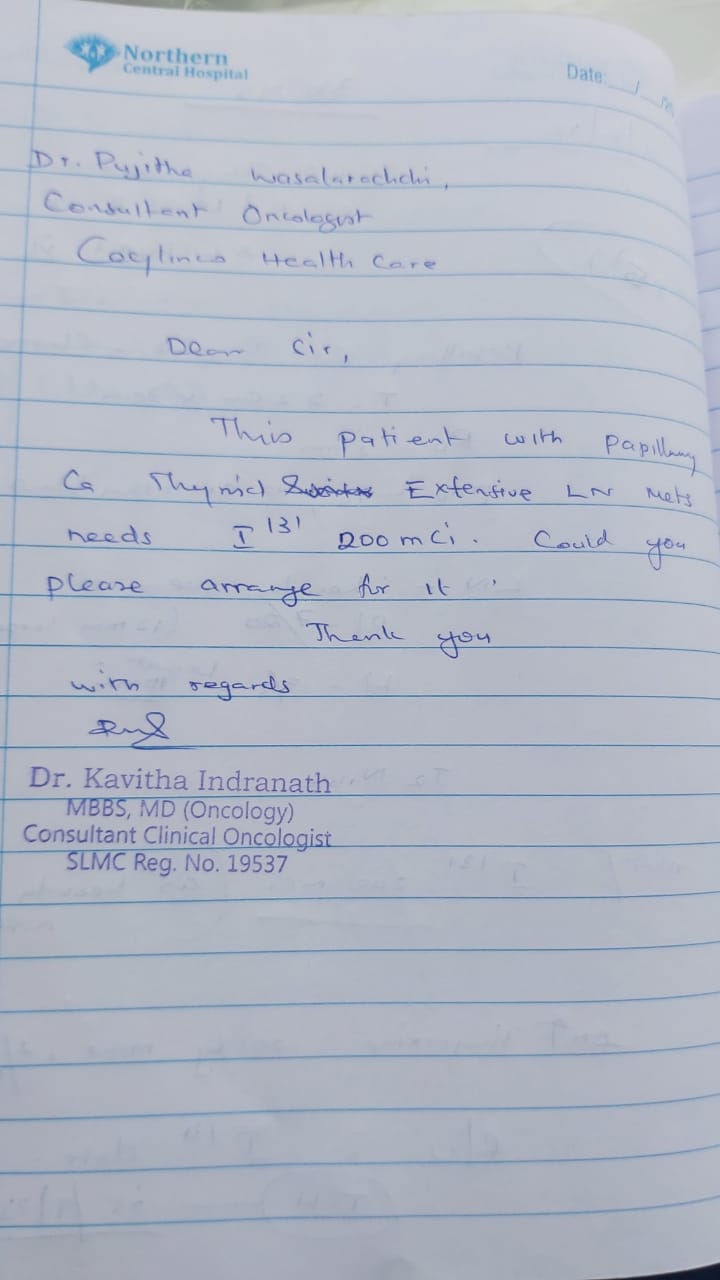 Northern
Central Hospital
Date:
Dr. Pujitha Wasalarachchi,
Consultant Oncologist
Health Care
Dear Cir,
This patient with Papillary
Ca Thyroid Extensive LN Mets
needs I 131 200 mCi. Could you
please arrange for it.
Thank you
with regards
Dr. Kavitha Indranath
MBBS, MD (Oncology)
Consultant Clinical Oncologist
SLMC Reg. No. 19537